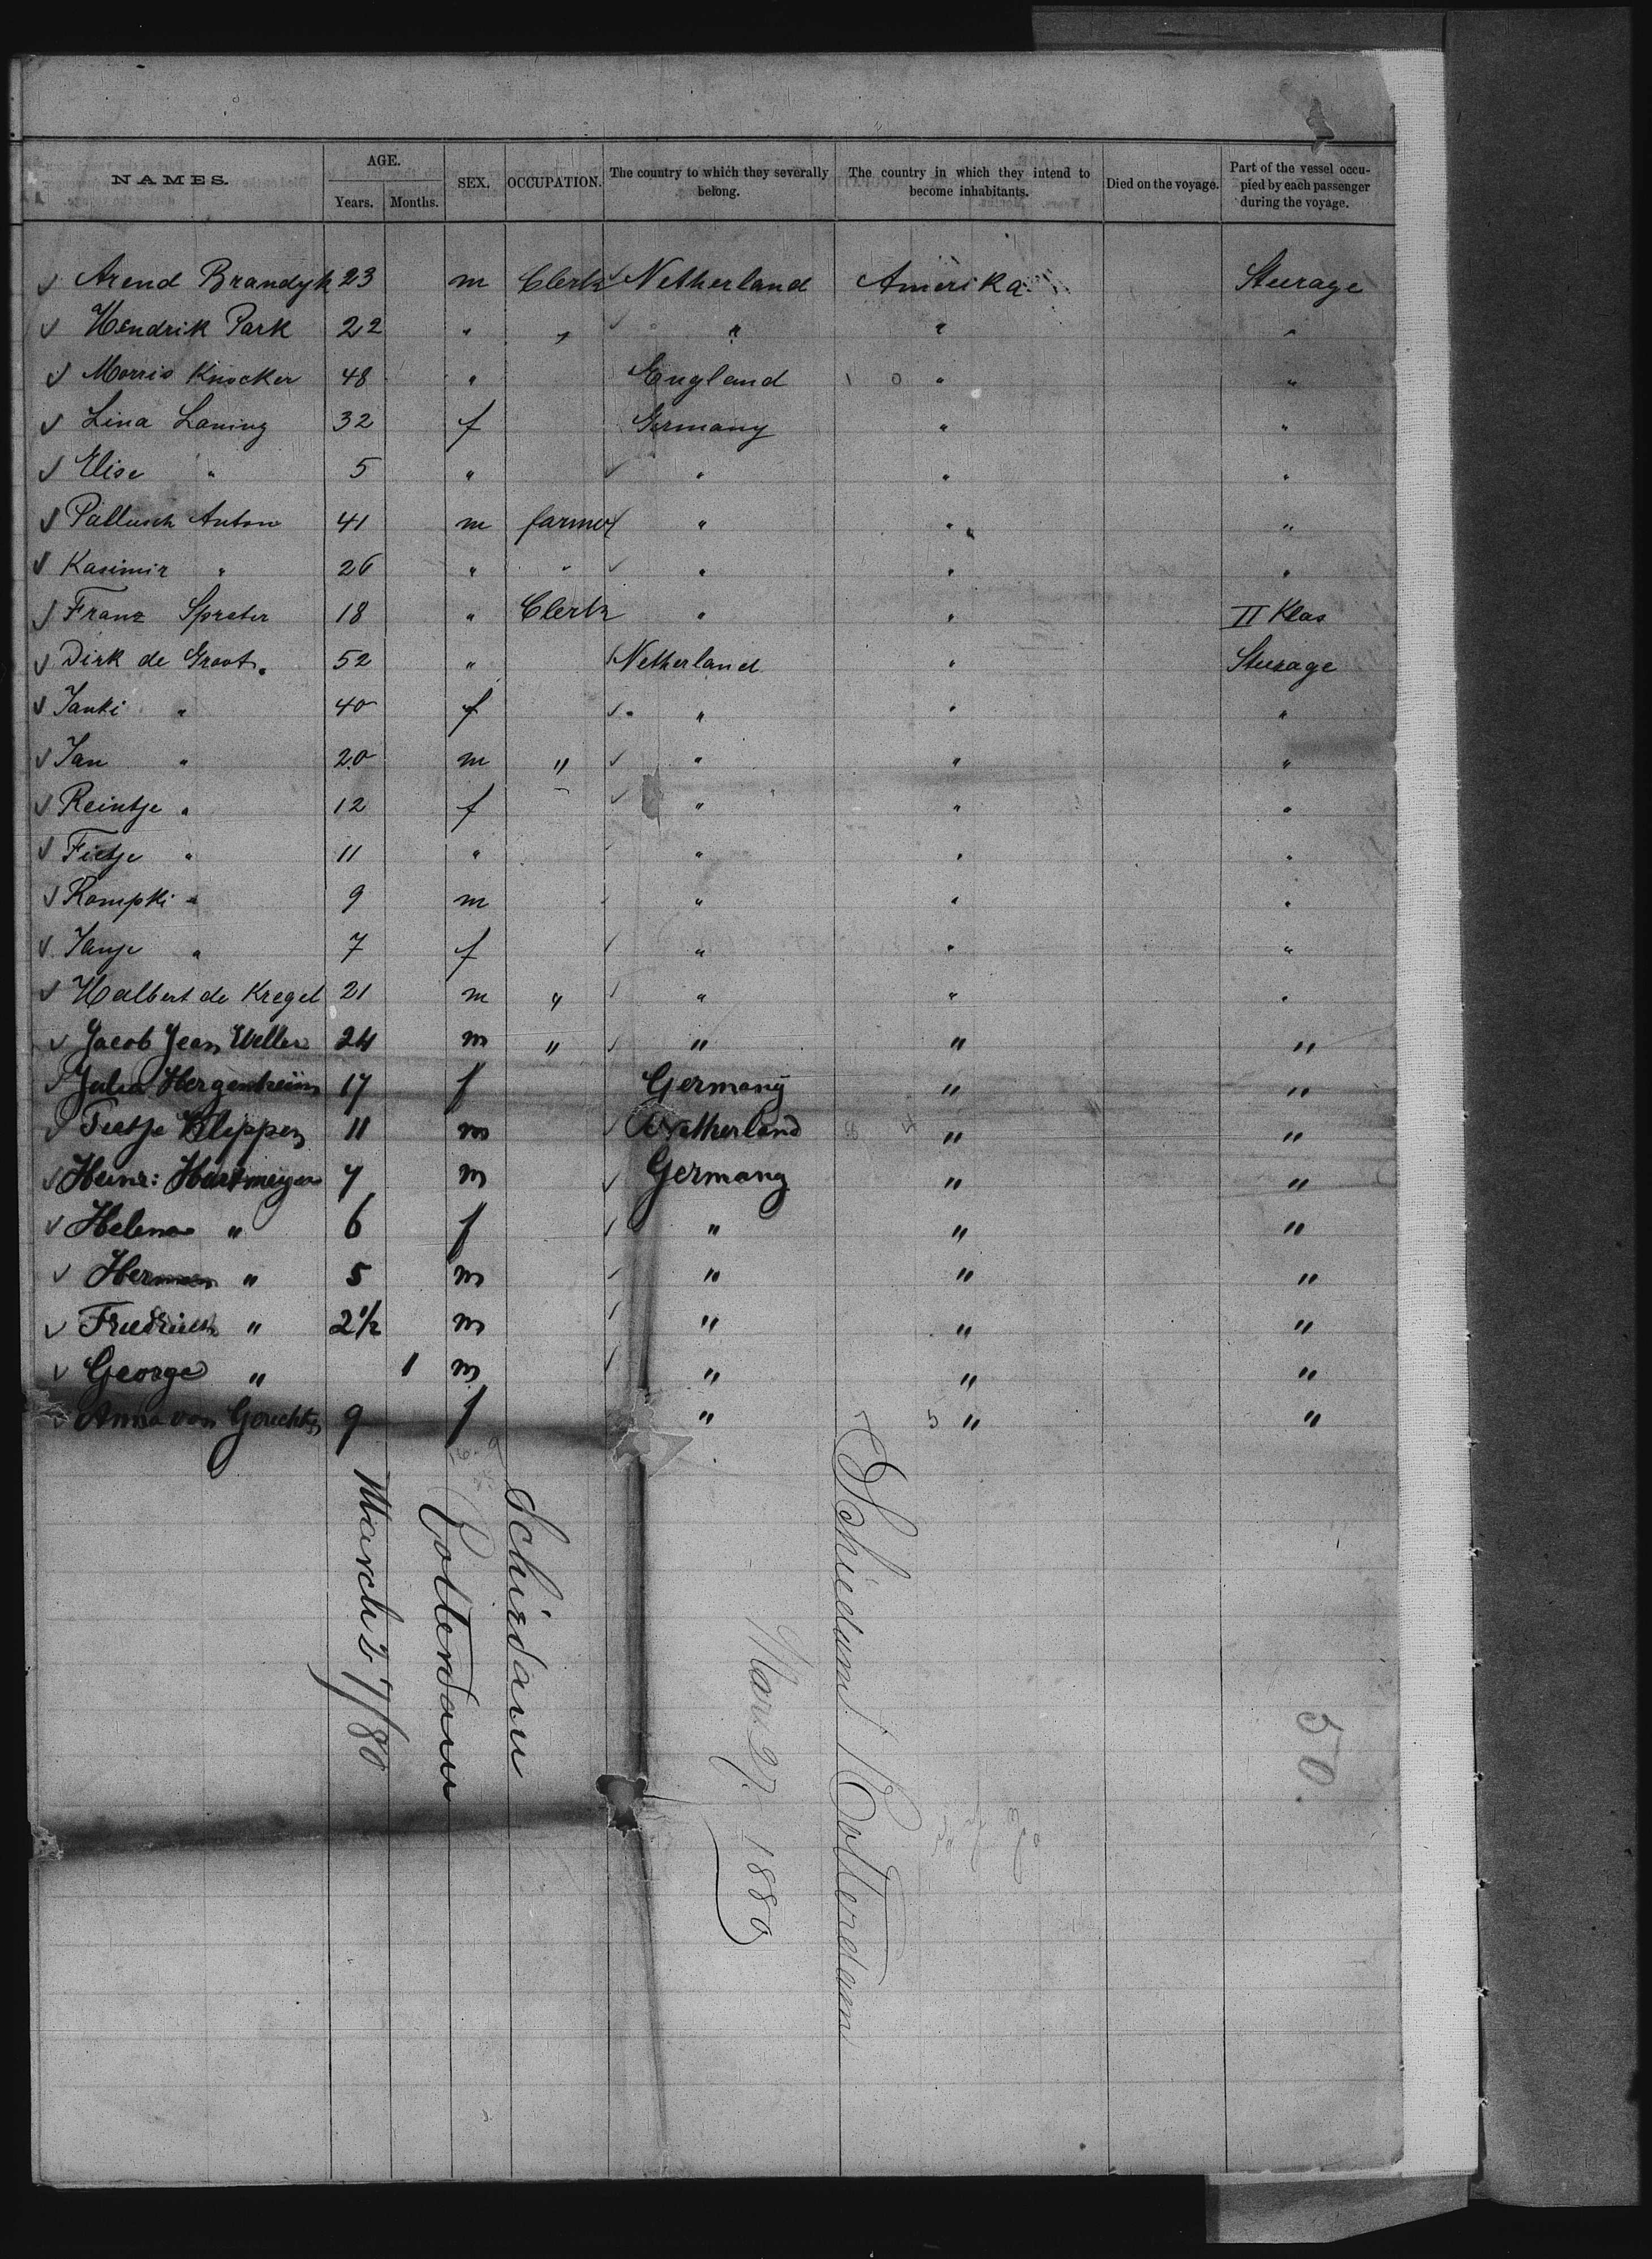 NAMES. AGE. Years. Months. SEX. OCCUPATION. The country to which they severally belong. The country in which they intend to become inhabitants. Died on the voyage. Part of the vessel occupied by each passenger during the voyage.
Arend Brandyk 23 m Clerk Netherland Amerika Steerage
Hendrik Park 22 " " " " "
Morris Knocker 48 " England " "
Lina Laning 32 f Germany " "
Elise " 5 " " " "
Pallusch Anton 41 m farmer " " "
Kasimir " 26 " " " " "
Franz Spreter 18 " Clerk " " II Klas
Dirk de Groot 52 " Netherland " Steerage
Janki " 40 f " " "
Jan " 20 m " " " "
Reintje " 12 f " " "
Fietje " 11 " " " "
Rompki " 9 m " " "
Janje " 7 f " " "
Halbert de Kregel 21 m " " " "
Jacob Jean Weller 24 m " " " "
Julia Hergenheim 17 f Germany " "
Tietje Klippen 11 m Netherland " "
Heinr: Hartmeyer 7 m Germany " "
Helena " 6 f " " "
Herman " 5 m " " "
Friedrich " 2 1/2 m " " "
George " 1 m " " "
Anna von 9 f " " "
Schirdam
Rotterdam
March 27/80
Schiedam Rotterdam
Mar 27. 1880
50